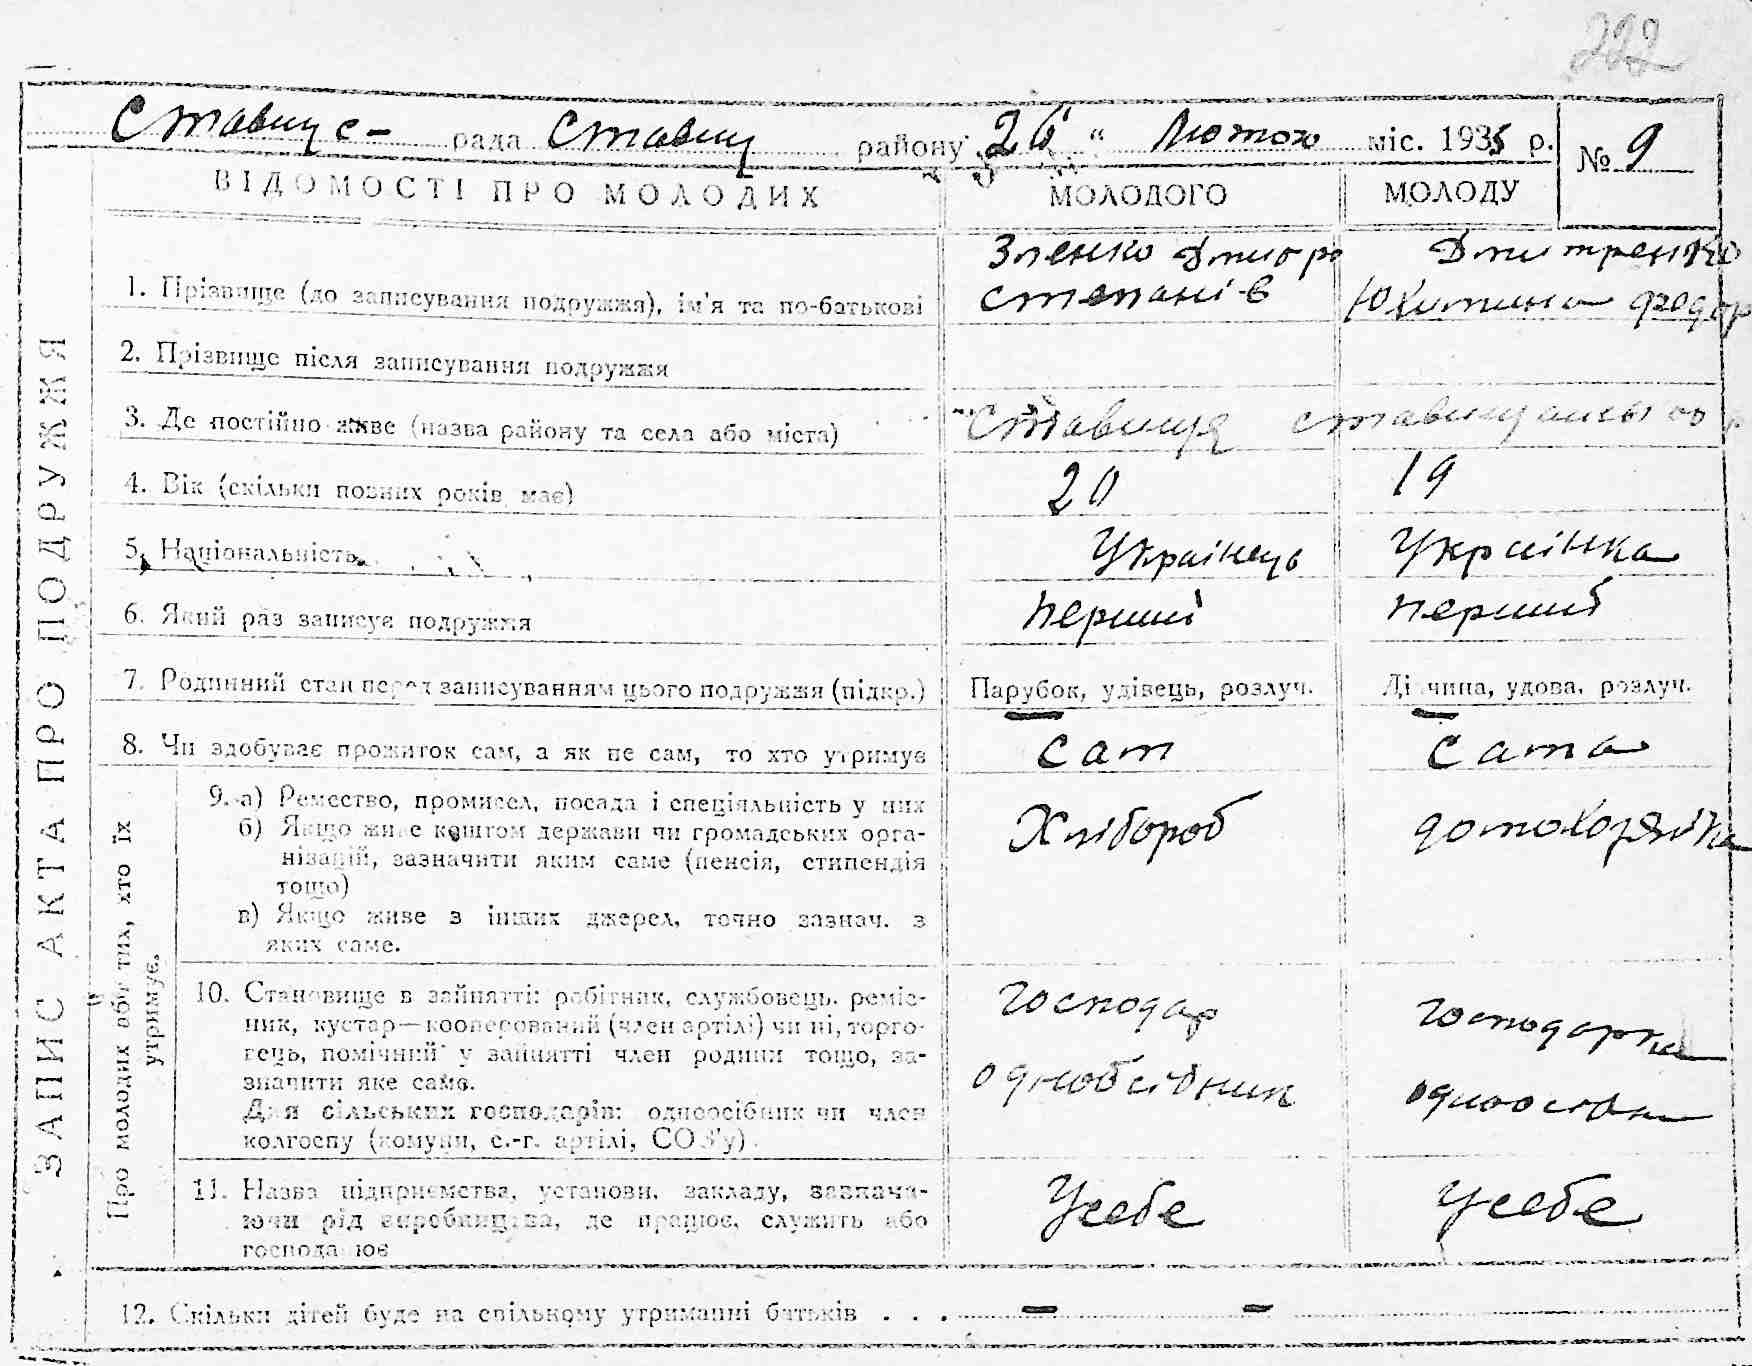 222
Ставище- рада Ставищ району 26 " Лютого міс. 1935 р. № 9
ВІДОМОСТІ ПРО МОЛОДИХ МОЛОДОГО МОЛОДУ
Зленко Дмитро Дмитренко
1. Прізвище (до записування подружжя), ім'я та по-батькові Степанів Юхимина Федор
2. Прізвище після записування подружжя
3. Де постійно живе (назва району та села або міста) Ставище
4. Вік (скільки повних років має) 20 19
5. Національність Українець Українка
6. Який раз записує подружжя перший перший
7. Родинний стан перед записуванням цього подружжя (підкр.) Парубок, удівець, розлуч. Дівчина, удова, розлуч.
8. Чи здобуває прожиток сам, а як не сам, то хто утримує Сам Сама
9. а) Ремество, промисел, посада і спеціяльність у них Хлібороб домохозяйка
б) Якщо живе коштом держави чи громадських орга-
нізацій, зазначити яким саме (пенсія, стипендія
тощо)
в) Якщо живе з інших джерел, точно зазнач. з
яких саме.
10. Становище в зайнятті: робітник, службовець, реміс- господар господарка
ник, кустар—кооперований (член артілі) чи ні, торго-
вець, помічний у зайнятті член родини тощо, за-
значити яке саме. одноосібник одноосібни
Для сільських господарів: одноосібник чи член
колгоспу (комуни, с.-г. артілі, СОЗ'у).
11. Назва підприємства, установи, закладу, зазнача- У себе У себе
ючи рід виробництва, де працює, служить або
господарює
12. Скільки дітей буде на спільному утриманні батьків . . . — —
ЗАПИС АКТА ПРО ПОДРУЖЖЯ
Про молодих або тих, хто їх
утримує.